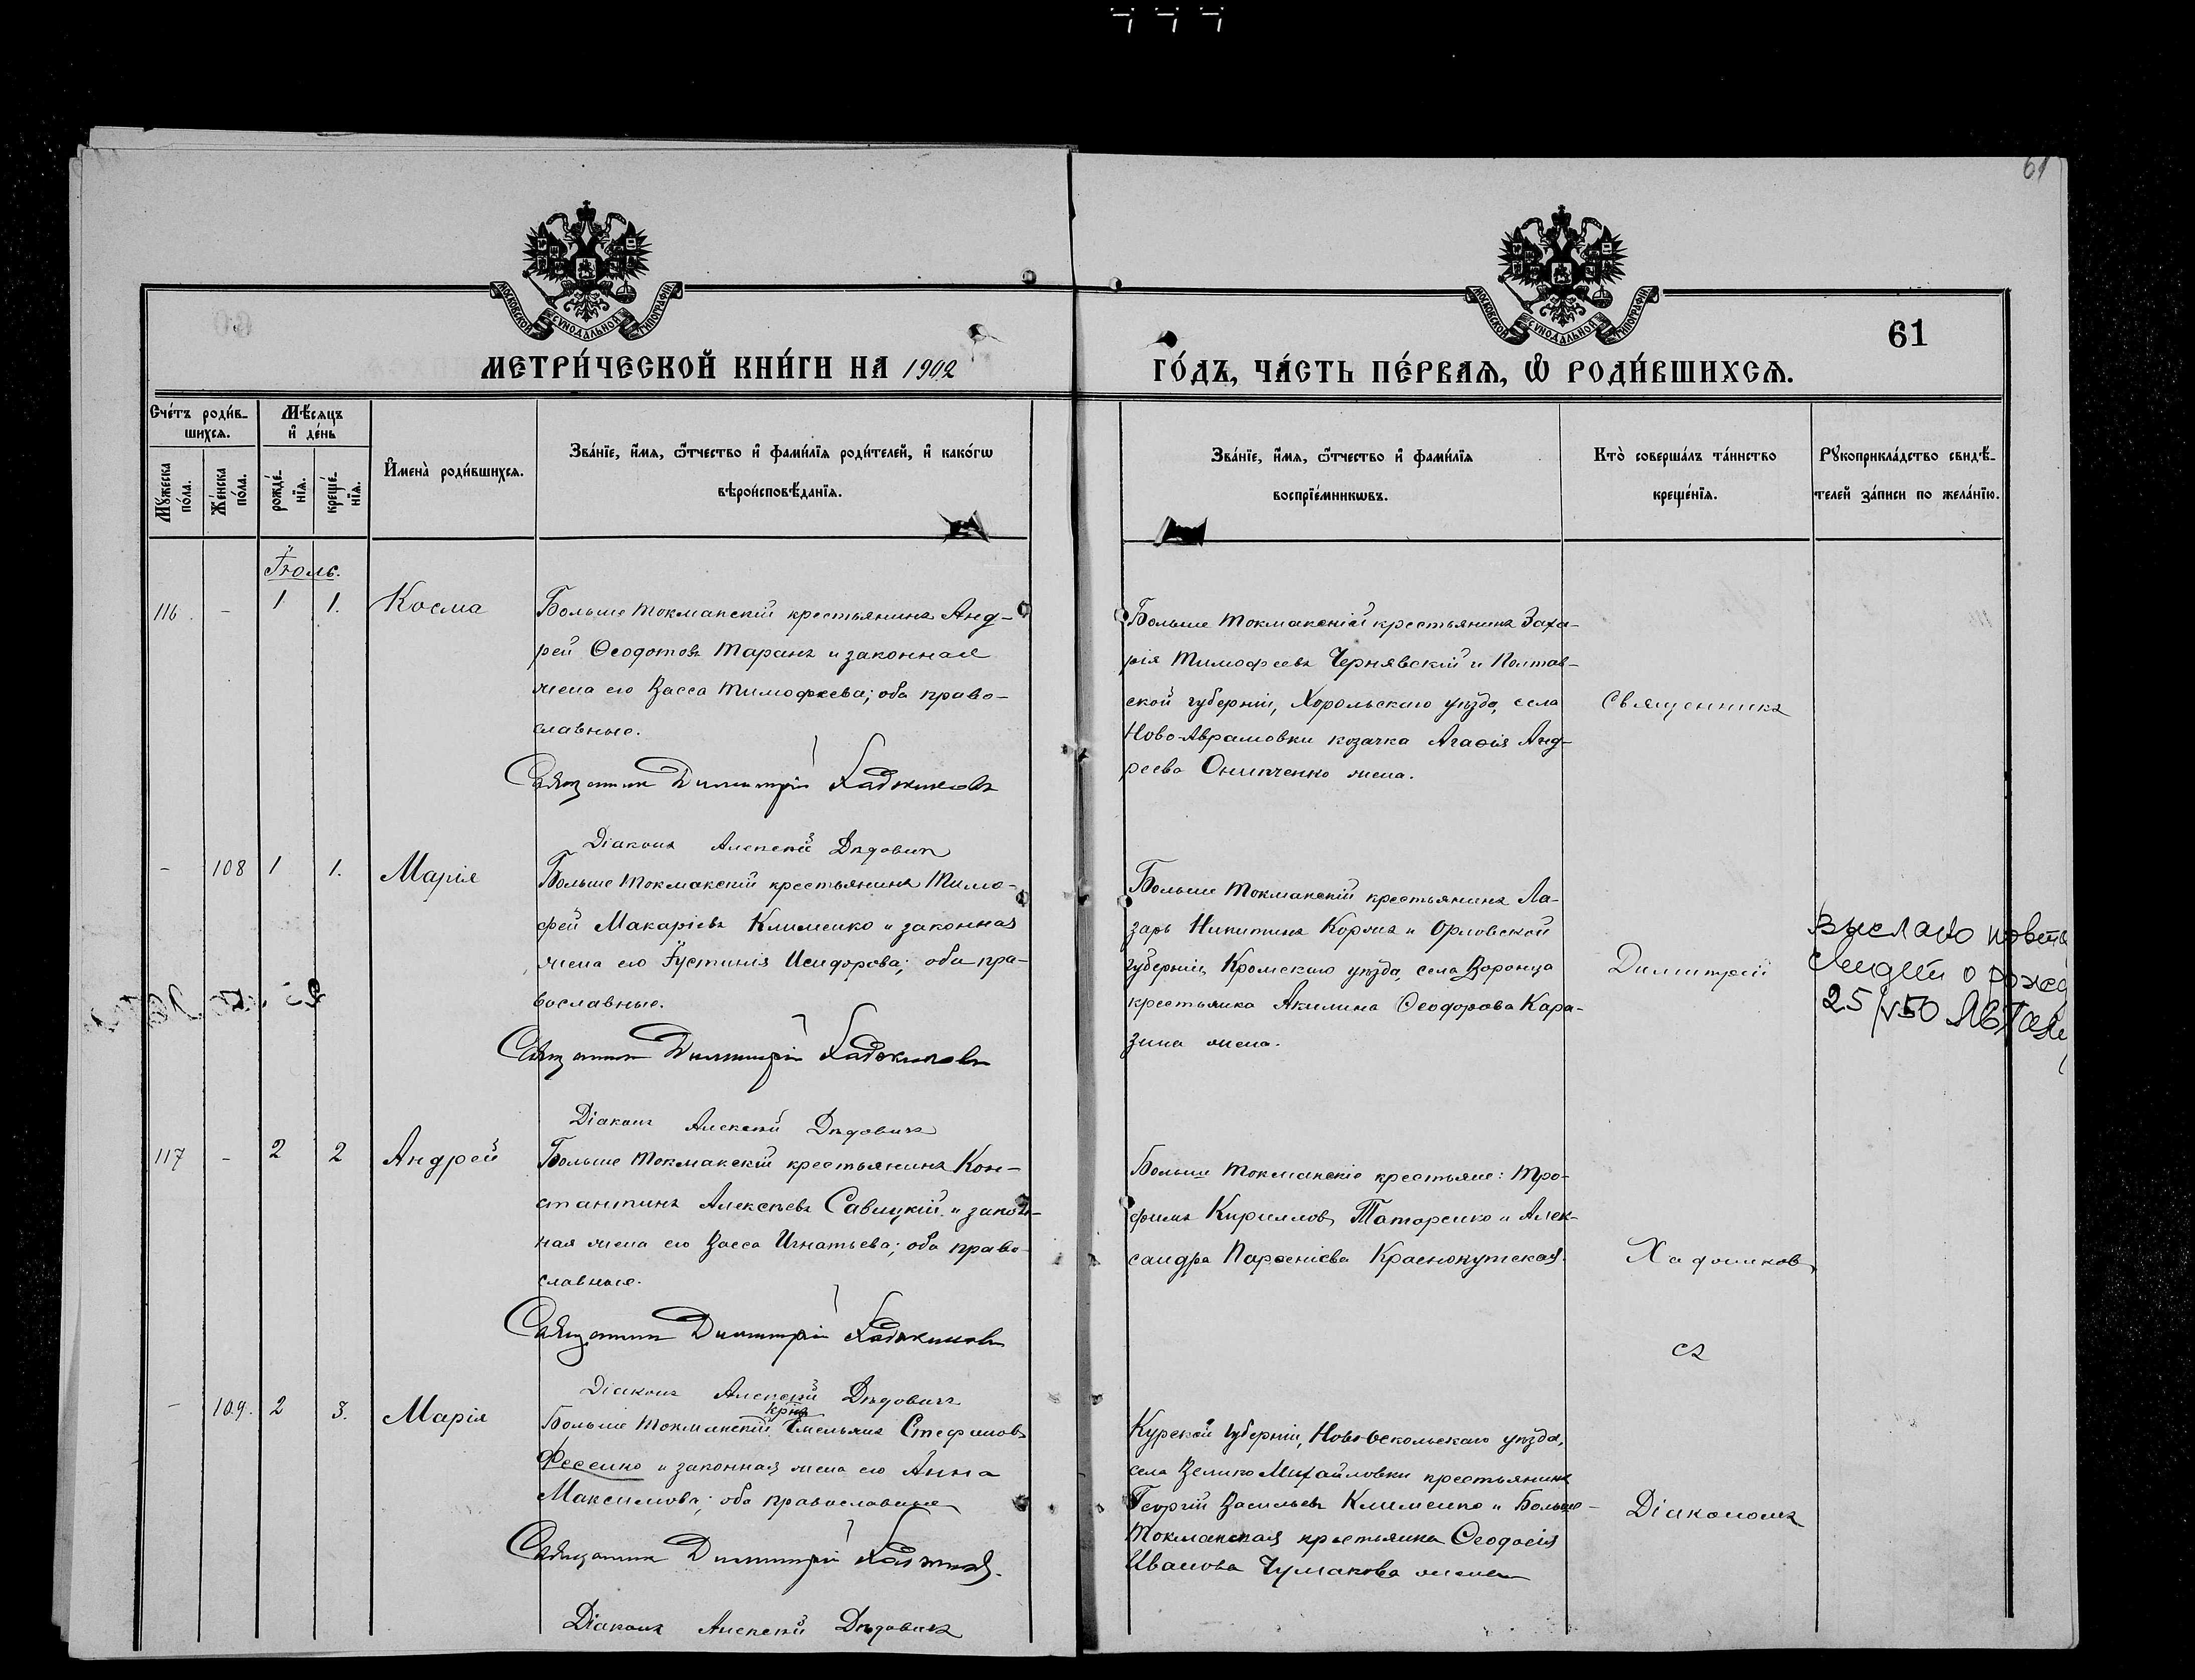 61
МОСКОВСКОЙ СѴНОДАЛЬНОЙ ТИПОГРАФІИ
МОСКОВСКОЙ СѴНОДАЛЬНОЙ ТИПОГРАФІИ
61
МЕТРИ́ЧЕСКОЙ КНИ́ГИ НА 1902
ГО́ДЪ, ЧА́СТЬ ПЕ́РВАѦ, Ѽ РОДИ́ВШИХСѦ.
Сче́тъ роди́в-
шихсѧ.
Мꙋ́жеска по́ла.
Же́нска по́ла.
Мѣ́сѧцъ
и҆ де́нь
рожде́-нїѧ.
креще́-нїѧ.
И҆мена̀ роди́вшихсѧ.
Зва́нїе, и҆́мѧ, ѻ҆́тчество и҆ фами́лїѧ роди́телей, и҆ како́гѡ
вѣроисповѣ́данїѧ.
Зва́нїе, и҆́мѧ, ѻ҆́тчество и҆ фами́лїѧ
воспрїе́мникѡвъ.
Кто̀ соверша́лъ та́инство
креще́нїѧ.
Рꙋкоприкла́дство свидѣ́-
телей за́писи по жела́нїю.
Іюль.
116. - 1 1. Косма
Больше Токмакскій крестьянинъ Анд-
рей Ѳеодотовъ Таранъ и законная
жена его Васса Тимофеева; оба право-
славные.
Священникъ Димитрій Хаджиновъ
Діаконъ Алексѣй Дѣдовичъ
Больше Токмакскій крестьянинъ Заха-
рія Тимофеевъ Чернявскій и Полтав-
ской губерніи, Хорольскаго уѣзда, села
Ново-Аврамовки козачка Агафія Анд-
реева Онипченко жена.
Священникъ
- 108 1 1. Марія
Больше Токмакскій крестьянинъ Тимо-
фей Макаріевъ Клименко и законная
жена его Іустинія Исидорова; оба пра-
вославные.
Священникъ Димитрій Хаджиновъ
Діаконъ Алексѣй Дѣдовичъ
Больше Токмакскій крестьянинъ Ла-
зарь Никитинъ Коржъ и Орловской
губерніи, Кромскаго уѣзда, села Воронца
крестьянка Акилина Ѳеодорова Кара-
зина жена.
Димитрій
выслано
о рожд
117 - 2 2 Андрей
Больше Токмакскій крестьянинъ Кон-
стантинъ Алексѣевъ Савицкій и закон-
ная жена его Васса Игнатьева; оба право-
славные.
Священникъ Димитрій Хаджиновъ
Діаконъ Алексѣй Дѣдовичъ
Больше Токмакскіе крестьяне: Тро-
фимъ Кирилловъ Татаренко и Алек-
сандра Парѳеніева Краснокутская.
Хаджиновъ
съ
- 109. 2 3. Марія
крнъ
Больше Токмакскій Емельянъ Стефановъ
Фесенко и законная жена его Анна
Максимова; оба православные
Священникъ Димитрій Хаджиновъ
Діаконъ Алексѣй Дѣдовичъ
Курской губерніи, Ново-Оскольскаго уѣзда,
села Велико Михайловки крестьянинъ
Георгій Васильевъ Клименко и Больше-
Токмакская крестьянка Ѳеодосія
Иванова Чумакова жена
Діакономъ